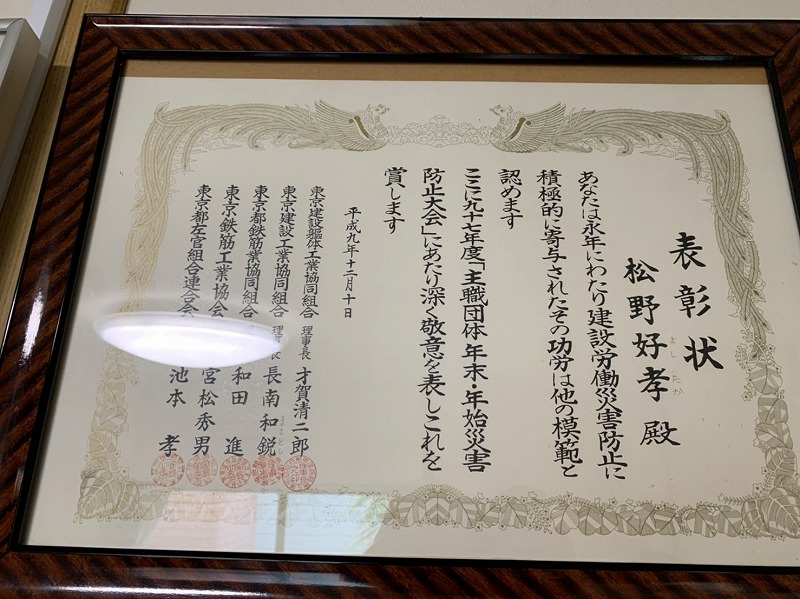 表彰状
松野好孝 殿
よし たか
あなたは永年にわたり建設労働災害防止に
積極的に寄与されたその功労は他の模範と
認めます
ここに九十七年度「主職団体年末・年始災害
防止大会」にあたり深く敬意を表しこれを
賞します
平成九年十二月十日
東京建設躯体工業協同組合 理事長 才賀清二郎
東京建設工業協同組合 理事長 長南和鋭
東京都鉄筋業協同組合 和田 進
東京鉄筋工業協会 宮松秀男
東京都左官組合連合会 池本 孝